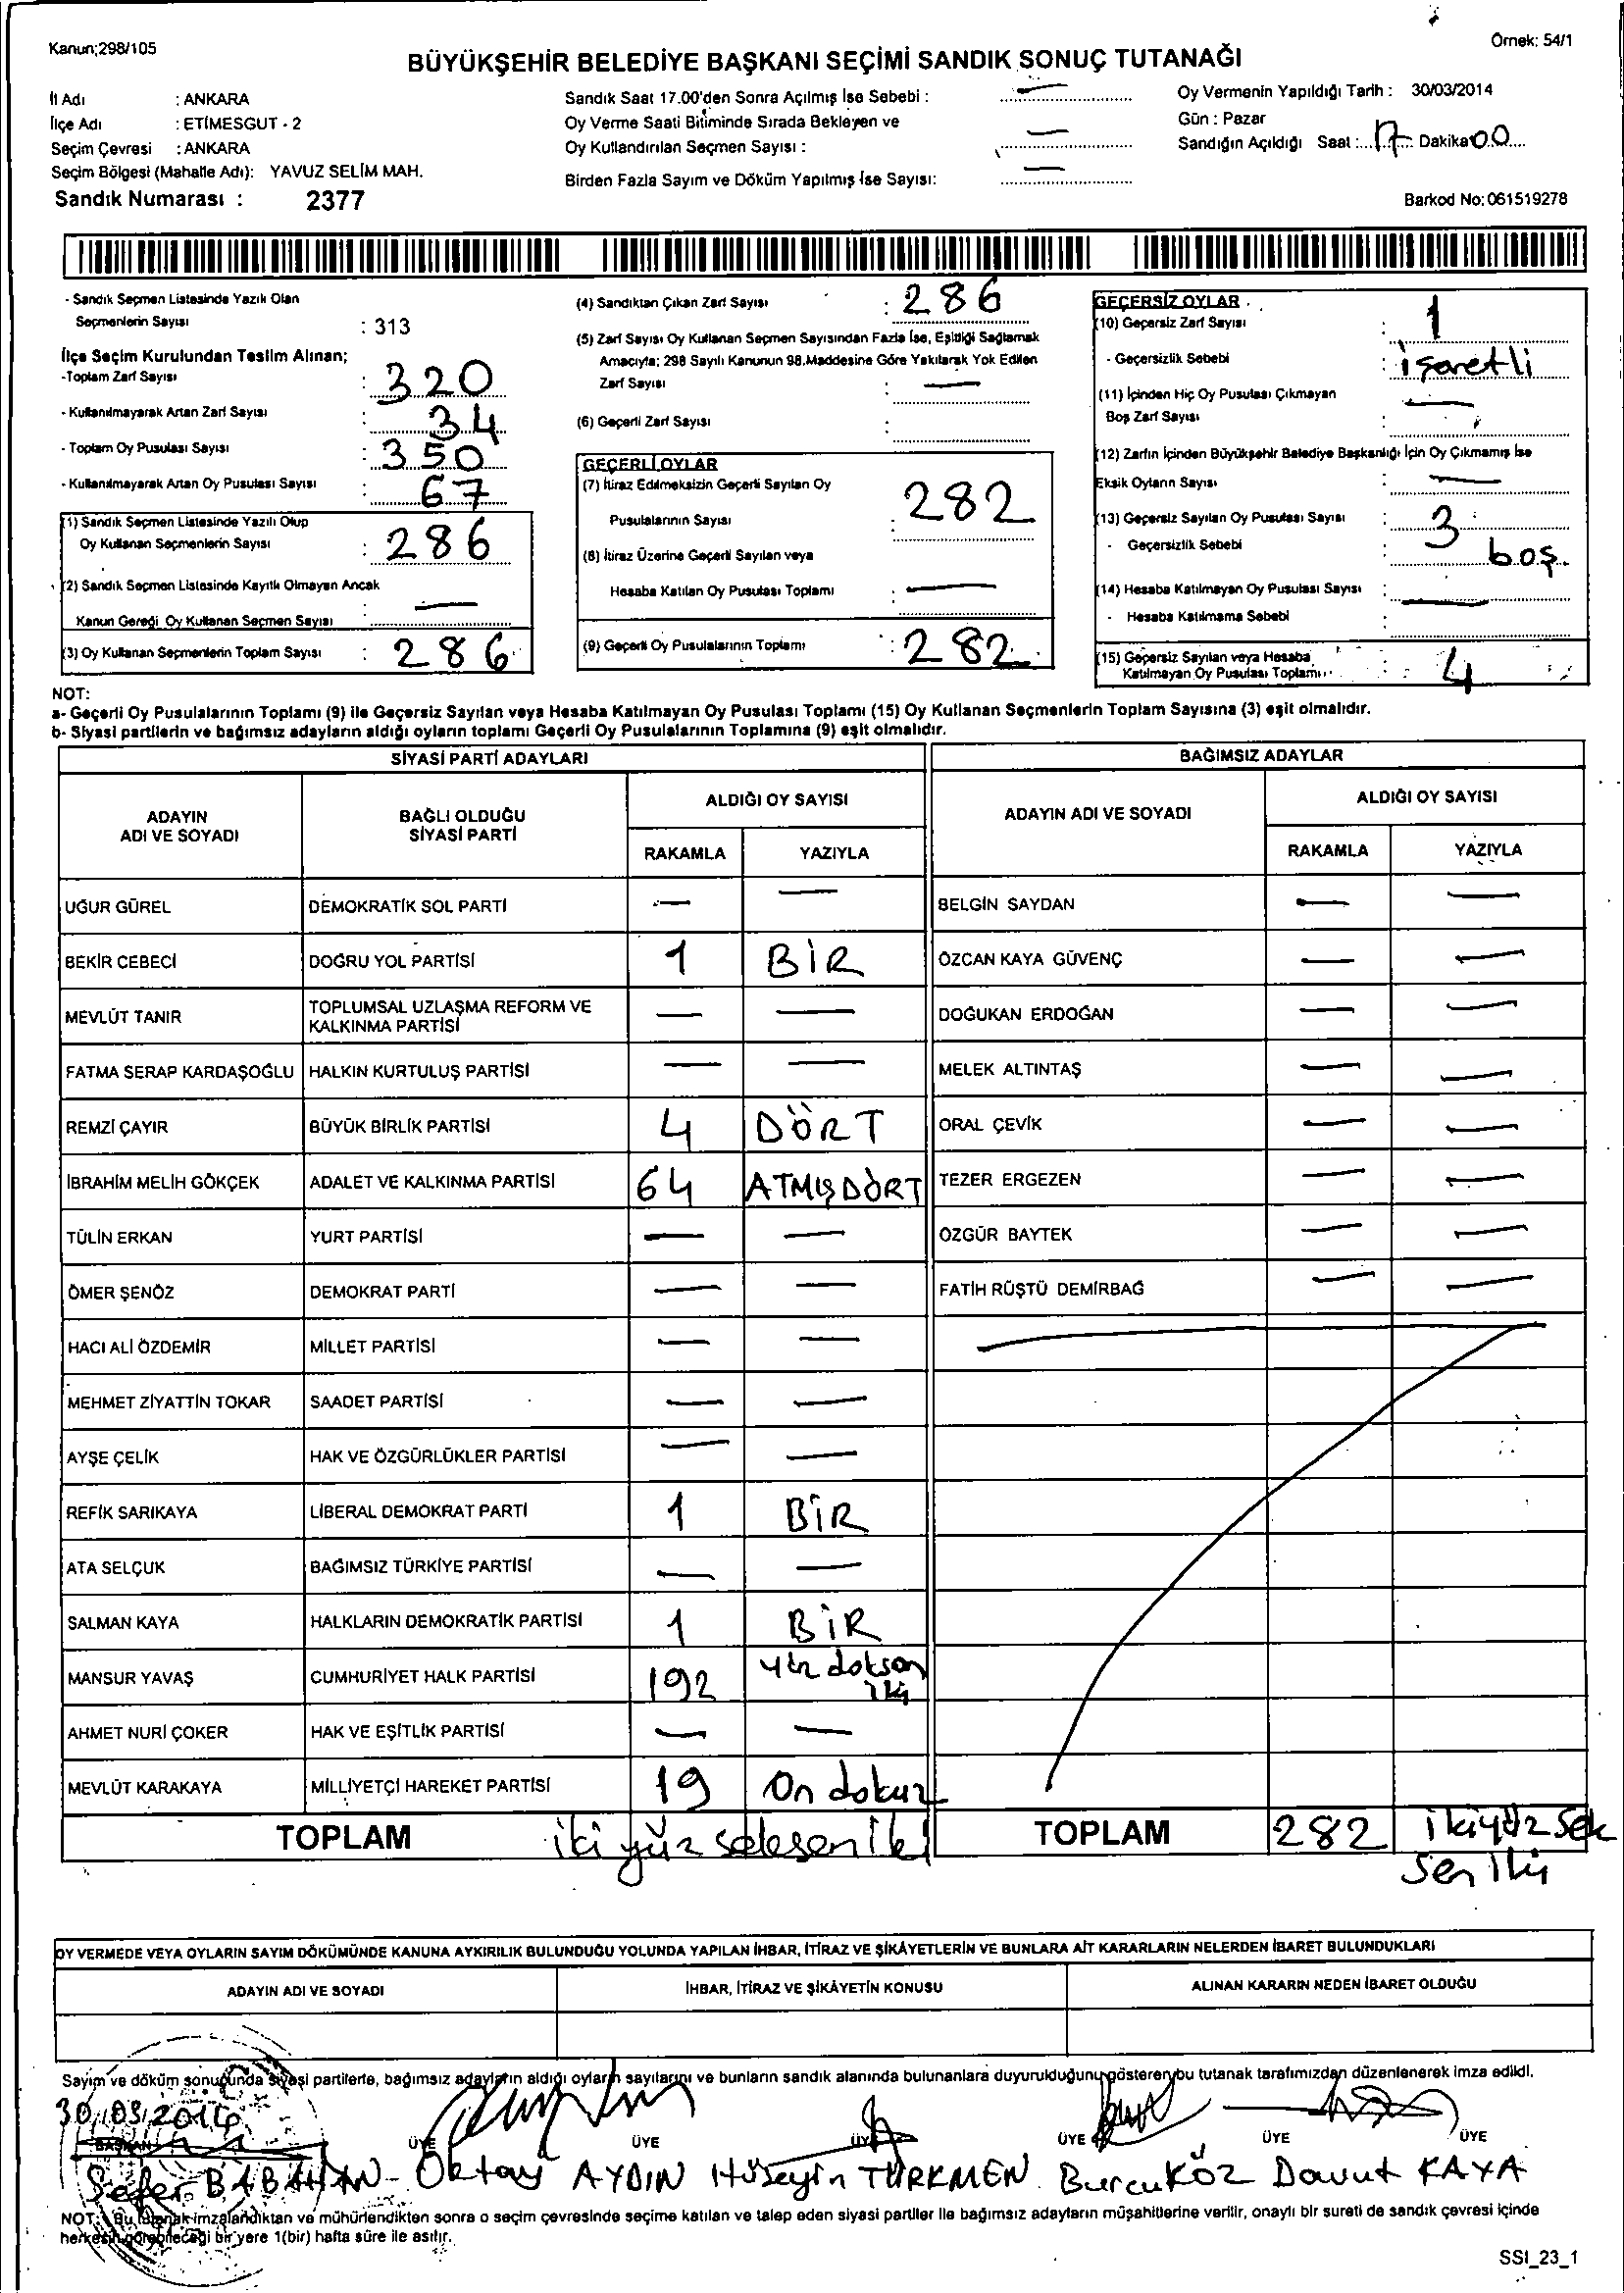 Kanun;298/105
Örnek: 54/1
BÜYÜKŞEHİR BELEDİYE BAŞKANI SEÇİMİ SANDIK SONUÇ TUTANAĞI
İl Adı : ANKARA
İlçe Adı : ETİMESGUT - 2
Seçim Çevresi : ANKARA
Seçim Bölgesi (Mahalle Adı): YAVUZ SELİM MAH.
Sandık Numarası : 2377
Sandık Saat 17.00'den Sonra Açılmış İse Sebebi : —
Oy Verme Saati Bitiminde Sırada Bekleyen ve
Oy Kullandırılan Seçmen Sayısı : —
Birden Fazla Sayım ve Döküm Yapılmış İse Sayısı: —
Oy Vermenin Yapıldığı Tarih : 30/03/2014
Gün : Pazar
Sandığın Açıldığı Saat : 17 Dakika 00
Barkod No: 061519278
- Sandık Seçmen Listesinde Yazılı Olan
Seçmenlerin Sayısı : 313
İlçe Seçim Kurulundan Teslim Alınan;
-Toplam Zarf Sayısı : 320
- Kullanılmayarak Artan Zarf Sayısı : 34
- Toplam Oy Pusulası Sayısı : 350
- Kullanılmayarak Artan Oy Pusulası Sayısı : 67
(1) Sandık Seçmen Listesinde Yazılı Olup
Oy Kullanan Seçmenlerin Sayısı : 286
(2) Sandık Seçmen Listesinde Kayıtlı Olmayan Ancak
Kanun Gereği Oy Kullanan Seçmen Sayısı : —
(3) Oy Kullanan Seçmenlerin Toplam Sayısı : 286
(4) Sandıktan Çıkan Zarf Sayısı : 286
(5) Zarf Sayısı Oy Kullanan Seçmen Sayısından Fazla İse, Eşitliği Sağlamak
Amacıyla; 298 Sayılı Kanunun 98.Maddesine Göre Yakılarak Yok Edilen
Zarf Sayısı : —
(6) Geçerli Zarf Sayısı :
GEÇERLİ OYLAR
(7) İtiraz Edilmeksizin Geçerli Sayılan Oy
Pusulalarının Sayısı : 282
(8) İtiraz Üzerine Geçerli Sayılan veya
Hesaba Katılan Oy Pusulası Toplamı : —
(9) Geçerli Oy Pusulalarının Toplamı : 282
GEÇERSİZ OYLAR
(10) Geçersiz Zarf Sayısı : 1
- Geçersizlik Sebebi : işaretli
(11) İçinden Hiç Oy Pusulası Çıkmayan
Boş Zarf Sayısı : —
(12) Zarfın İçinden Büyükşehir Belediye Başkanlığı İçin Oy Çıkmamış İse
Eksik Oyların Sayısı : —
(13) Geçersiz Sayılan Oy Pusulası Sayısı : 3
- Geçersizlik Sebebi : boş.
(14) Hesaba Katılmayan Oy Pusulası Sayısı : —
- Hesaba Katılmama Sebebi :
(15) Geçersiz Sayılan veya Hesaba
Katılmayan Oy Pusulası Toplamı : 4
NOT:
a- Geçerli Oy Pusulalarının Toplamı (9) ile Geçersiz Sayılan veya Hesaba Katılmayan Oy Pusulası Toplamı (15) Oy Kullanan Seçmenlerin Toplam Sayısına (3) eşit olmalıdır.
b- Siyasi partilerin ve bağımsız adayların aldığı oyların toplamı Geçerli Oy Pusulalarının Toplamına (9) eşit olmalıdır.
SİYASİ PARTİ ADAYLARI
BAĞIMSIZ ADAYLAR
ADAYIN
ADI VE SOYADI
BAĞLI OLDUĞU
SİYASİ PARTİ
ALDIĞI OY SAYISI
RAKAMLA YAZIYLA
ADAYIN ADI VE SOYADI
ALDIĞI OY SAYISI
RAKAMLA YAZIYLA
UĞUR GÜREL DEMOKRATİK SOL PARTİ — — BELGİN SAYDAN — —
BEKİR CEBECİ DOĞRU YOL PARTİSİ 1 BİR ÖZCAN KAYA GÜVENÇ — —
MEVLÜT TANIR TOPLUMSAL UZLAŞMA REFORM VE
KALKINMA PARTİSİ — — DOĞUKAN ERDOĞAN — —
FATMA SERAP KARDAŞOĞLU HALKIN KURTULUŞ PARTİSİ — — MELEK ALTINTAŞ — —
REMZİ ÇAYIR BÜYÜK BİRLİK PARTİSİ 4 DÖRT ORAL ÇEVİK — —
İBRAHİM MELİH GÖKÇEK ADALET VE KALKINMA PARTİSİ 64 ATMIŞDÖRT TEZER ERGEZEN — —
TÜLİN ERKAN YURT PARTİSİ — — ÖZGÜR BAYTEK — —
ÖMER ŞENÖZ DEMOKRAT PARTİ — — FATİH RÜŞTÜ DEMİRBAĞ — —
HACI ALİ ÖZDEMİR MİLLET PARTİSİ — —
MEHMET ZİYATTİN TOKAR SAADET PARTİSİ — —
AYŞE ÇELİK HAK VE ÖZGÜRLÜKLER PARTİSİ — —
REFİK SARIKAYA LİBERAL DEMOKRAT PARTİ 1 BİR
ATA SELÇUK BAĞIMSIZ TÜRKİYE PARTİSİ — —
SALMAN KAYA HALKLARIN DEMOKRATİK PARTİSİ 1 BİR
MANSUR YAVAŞ CUMHURİYET HALK PARTİSİ 192 yüz doksan
iki
AHMET NURİ ÇOKER HAK VE EŞİTLİK PARTİSİ — —
MEVLÜT KARAKAYA MİLLİYETÇİ HAREKET PARTİSİ 19 On dokuz
TOPLAM iki yüz seksen iki TOPLAM 282 ikiyüz sek
sen iki
OY VERMEDE VEYA OYLARIN SAYIM DÖKÜMÜNDE KANUNA AYKIRILIK BULUNDUĞU YOLUNDA YAPILAN İHBAR, İTİRAZ VE ŞİKÂYETLERİN VE BUNLARA AİT KARARLARIN NELERDEN İBARET BULUNDUKLARI
ADAYIN ADI VE SOYADI İHBAR, İTİRAZ VE ŞİKÂYETİN KONUSU ALINAN KARARIN NEDEN İBARET OLDUĞU
Sayım ve döküm sonucunda siyasi partilerle, bağımsız adayların aldığı oyların sayılarını ve bunların sandık alanında bulunanlara duyurulduğunu gösteren bu tutanak tarafımızdan düzenlenerek imza edildi.
30/03/2014
BAŞKAN ÜYE ÜYE ÜYE ÜYE ÜYE ÜYE
Sefer BABAHAN Oktay AYDIN Hüseyin TÜRKMEN Burcu KÖZ Davut KAYA
NOT: Bu tutanak imzalandıktan ve mühürlendikten sonra o seçim çevresinde seçime katılan ve talep eden siyasi partiler ile bağımsız adayların müşahitlerine verilir, onaylı bir sureti de sandık çevresi içinde
herkesin görebileceği bir yere 1(bir) hafta süre ile asılır.
SSI_23_1